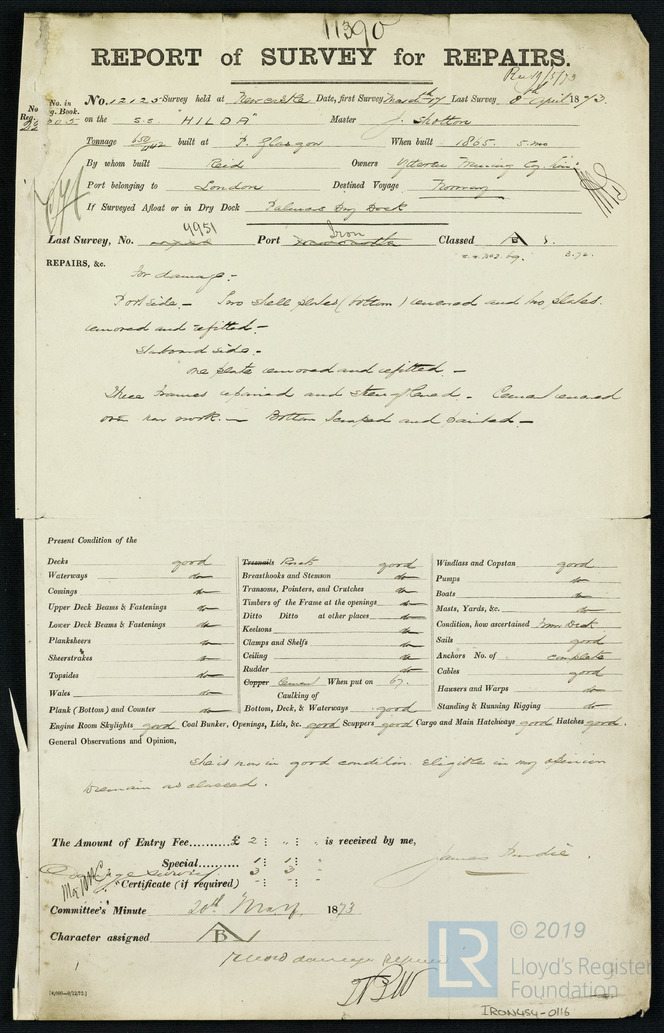 11390
REPORT of SURVEY for REPAIRS.
Rec 19/5/73
No. in Reg. Book. No. 12125 Survey held at Newcastle Date, first Survey March 17th Last Survey 8th April 1873.
on the S.S. "HILDA" Master J. Shotton
Tonnage 650 built at P. Glasgow When built 1865. 5 mo
By whom built Reid Owners
Port belonging to London Destined Voyage Norway
If Surveyed Afloat or in Dry Dock Palmers Dry Dock
Last Survey, No. 4951 Port Iron Classed A
REPAIRS, &c.
For damage.-
Port side.- Two shell plates (bottom) renewed and two plates
removed and refitted.-
Starboard side.-
One plate removed and refitted.-
Three Frames repaired and strengthened. - Cement renewed
over new work.- Bottom Scraped and painted.-
Present Condition of the
Decks good
Waterways do
Comings do
Upper Deck Beams & Fastenings do
Lower Deck Beams & Fastenings do
Planksheers do
Sheerstrakes do
Topsides do
Wales do
Plank (Bottom) and Counter do
Treenails Rivets good
Breasthooks and Stemson do
Transoms, Pointers, and Crutches do
Timbers of the Frame at the openings do
Ditto Ditto at other places do
Keelsons do
Clamps and Shelfs do
Ceiling do
Rudder do
Copper Cement When put on 67.
Caulking of
Bottom, Deck, & Waterways good
Windlass and Capstan good
Pumps do
Boats do
Masts, Yards, &c. do
Condition, how ascertained from Deck
Sails good
Anchors No. of complete
Cables good
Hausers and Warps do
Standing & Running Rigging do
Engine Room Skylights good Coal Bunker, Openings, Lids, &c. good Scuppers good Cargo and Main Hatchways good Hatches good.
General Observations and Opinion,
She is now in good condition. Eligible in my opinion
to remain as classed.
The Amount of Entry Fee.......... £ 2 : " : " is received by me,
Special.......... 1 : 1 :
Damage Survey 3 : 3 :
Certificate (if required)
James Purdie.
Committee's Minute 20th May 1873
Character assigned B
record damage repairs
[4,000—9/12/72.]
© 2019
LR Lloyd's Register
Foundation
IRON454-0116